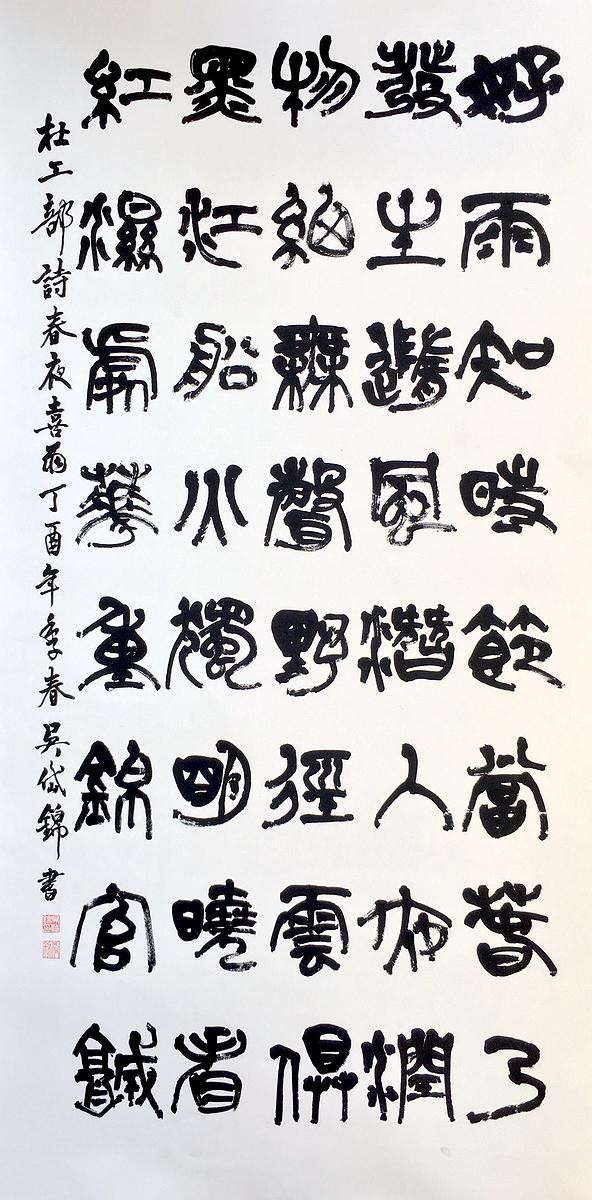 好雨知時節當春乃
發生隨風潛入夜潤
物細無聲野徑雲俱
黑江船火獨明曉看
紅濕處華重錦官城
杜工部詩春夜喜雨丁酉年季春吳岱錦書